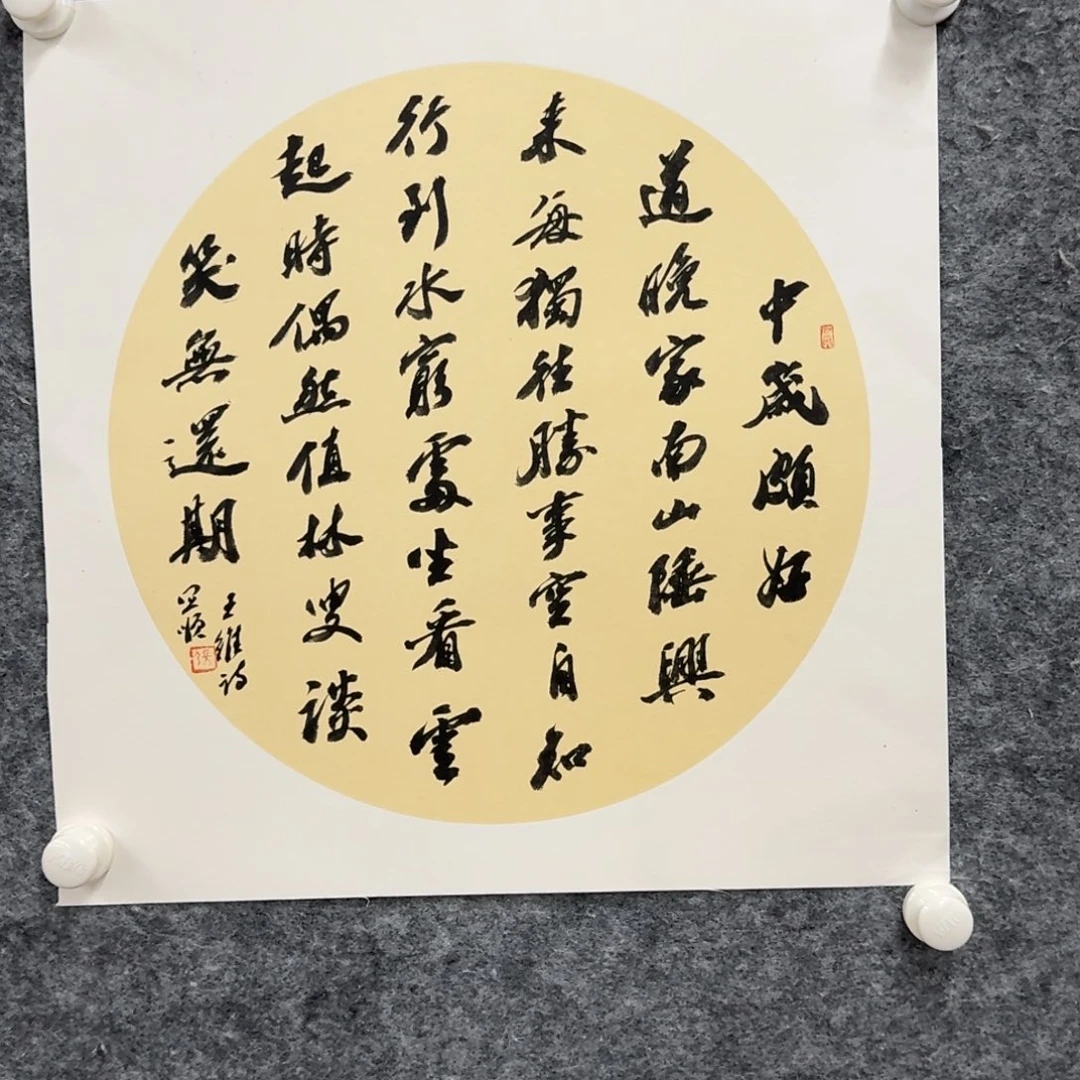 中歲頗好
道晚家南山陲興
来每獨往勝事空自知
行到水窮處坐看雲
起時偶然值林叟談
笑無還期
王維詩